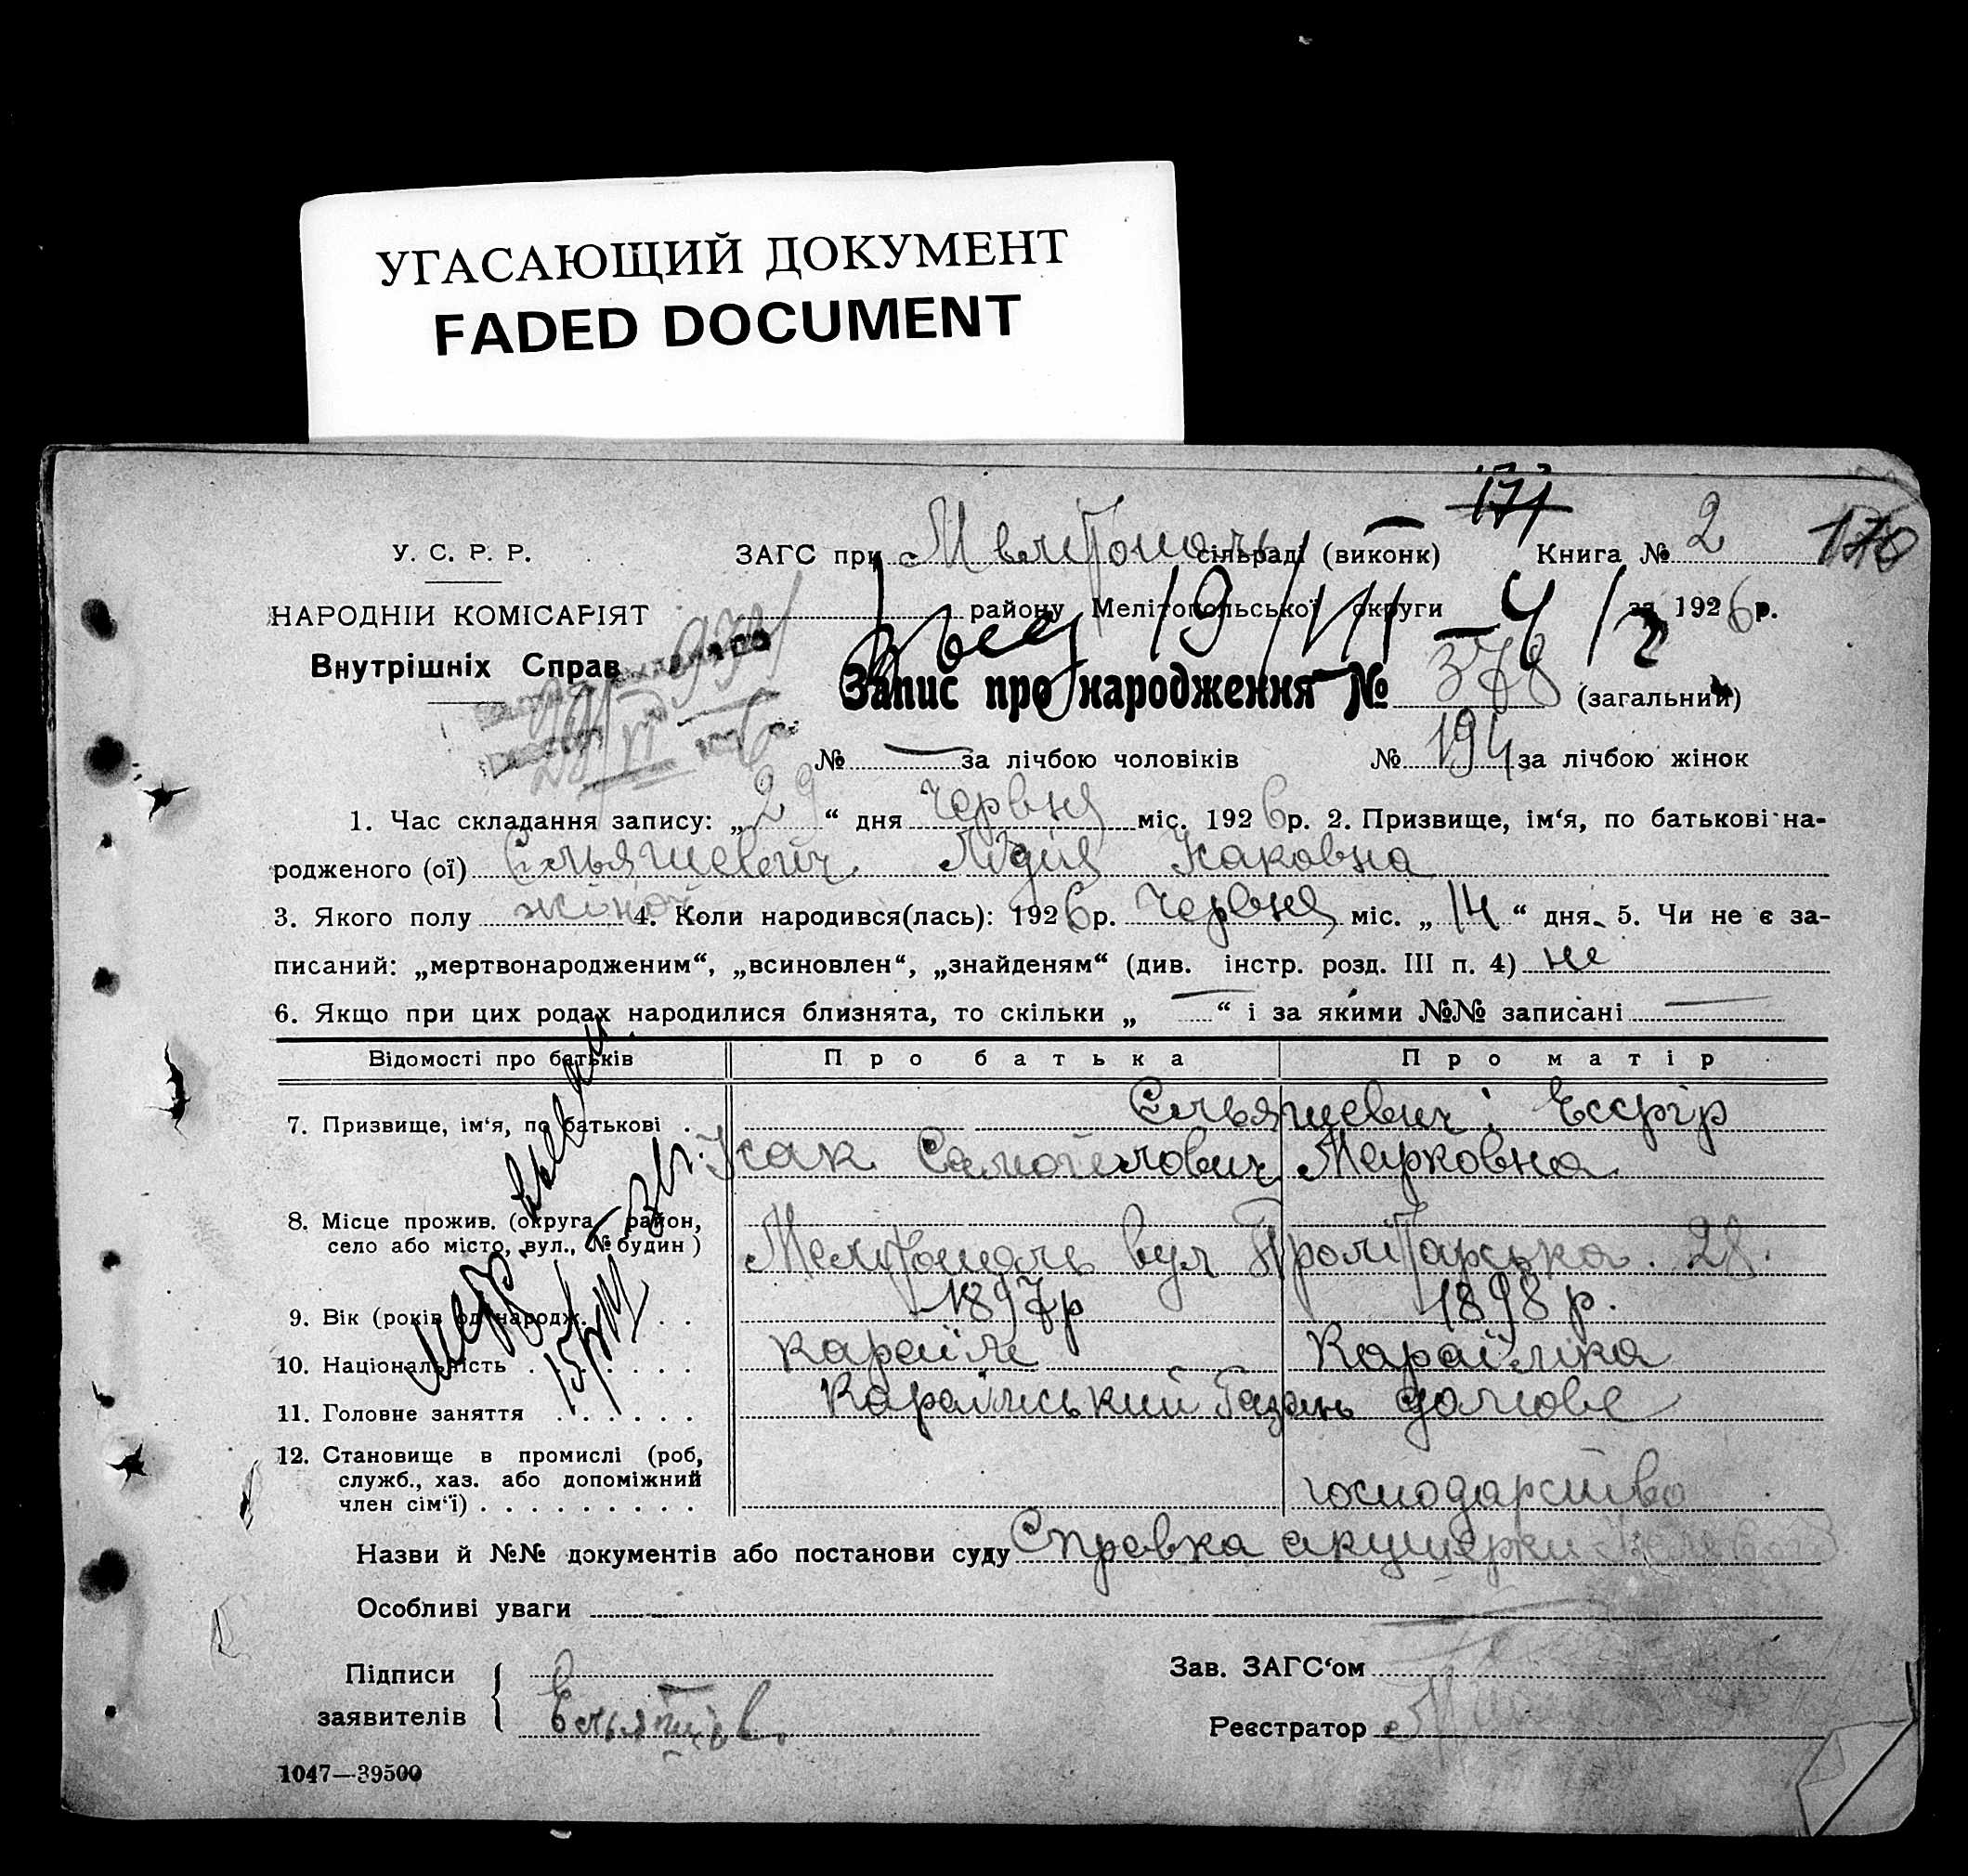 УГАСАЮЩИЙ ДОКУМЕНТ
FADED DOCUMENT
171
У. С. Р. Р. ЗАГС при Мелітополь сільраді (виконк) Книга № 2 170
НАРОДНІЙ КОМІСАРІЯТ району Мелітопольської округи за 1926 р.
19/VII 4/2
Внутрішніх Справ
Запис про народження № 378 (загальний)
№ — за лічбою чоловіків № 194 за лічбою жінок
1. Час складання запису: „29“ дня Червня міс. 1926 р. 2. Призвище, ім‘я, по батькові на-
родженого (ої) Єльяшевич Лідія Ісаковна
3. Якого полу жіночої 4. Коли народився(лась): 1926 р. Червня міс. „14“ дня. 5. Чи не є за-
писаний: „мертвонародженим“, „всиновлен“, „знайденям“ (див. інстр. розд. III п. 4) не
6. Якщо при цих родах народилися близнята, то скільки „ — “ і за якими №№ записані —
Відомості про батьків Про батька Про матір
7. Призвище, ім‘я, по батькові Єльяшевич: Ессфір
Ісак Самойлович Марковна
8. Місце прожив. (округа, район,
село або місто, вул., № будин) Мелітополь вул Пролітарська. 28.
9. Вік (років од народж. 1897р 1898 р.
10. Національність Караїм Караїмка
11. Головне заняття Караїмський Газан домове
12. Становище в промислі (роб,
служб., хаз. або допоміжний
член сім‘ї) господарство
Назви й №№ документів або постанови суду Справка акушерки
Особливі уваги
Підписи Зав. ЗАГС‘ом
заявителів
Реєстратор
1047—39500